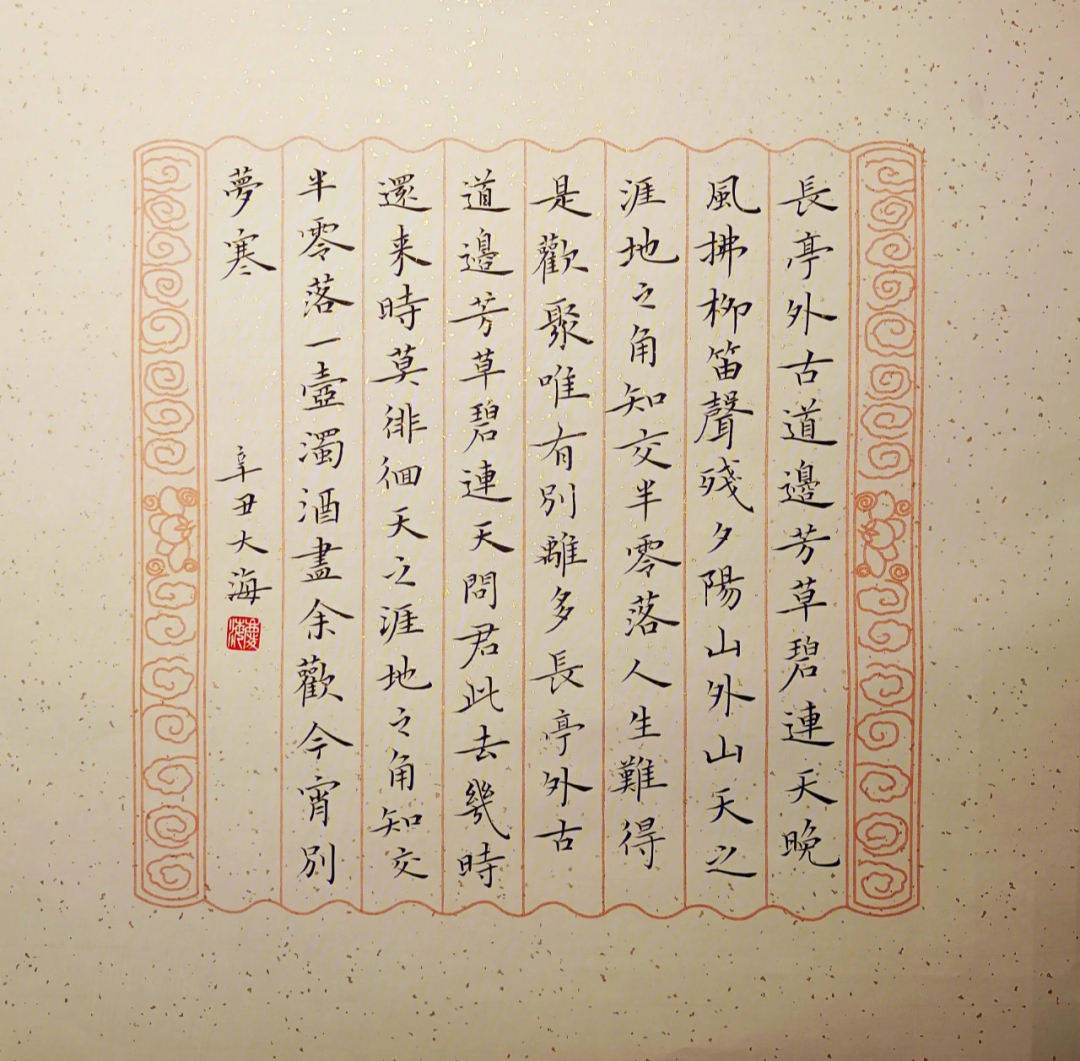 長亭外古道邊芳草碧連天晚
風拂柳笛聲殘夕陽山外山天之
涯地之角知交半零落人生難得
是歡聚唯有別離多長亭外古
道邊芳草碧連天問君此去幾時
還来時莫徘徊天之涯地之角知交
半零落一壺濁酒盡余歡今宵別
夢寒
辛丑大海